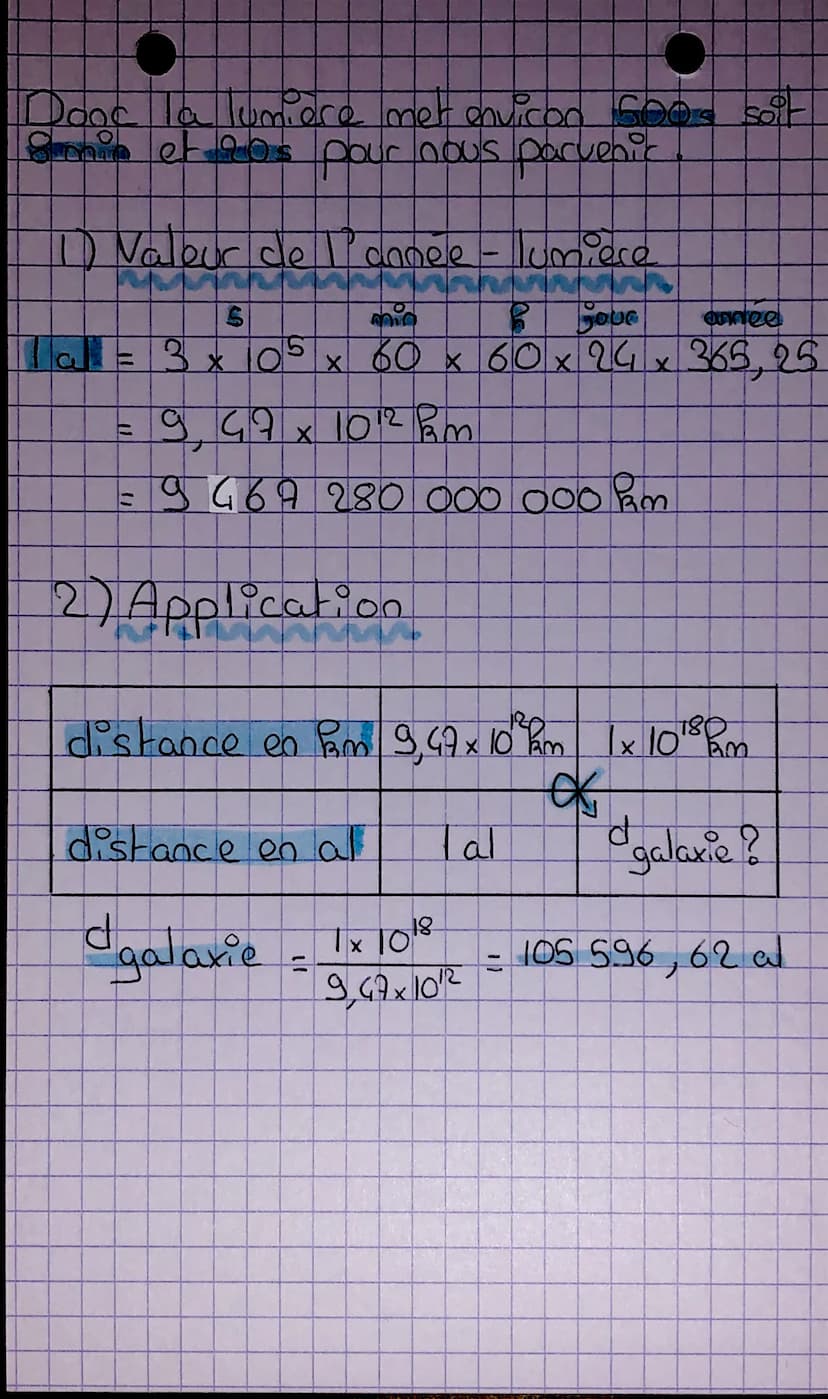 Donc la lumière met environ 500s soit
8 min et 20s pour nous parvenir.
1) Valeur de l'année-lumière
s min h jour année
1 al = 3 x 10⁵ x 60 x 60 x 24 x 365,25
= 9,47 x 10¹² km
= 9 467 280 000 000 km
2) Application
distance en km 9,47 x 10¹² km 1 x 10¹⁸ km
α
distance en al 1 al d galaxie ?
d galaxie = 1 x 10¹⁸ / 9,47 x 10¹² = 105 596,62 al